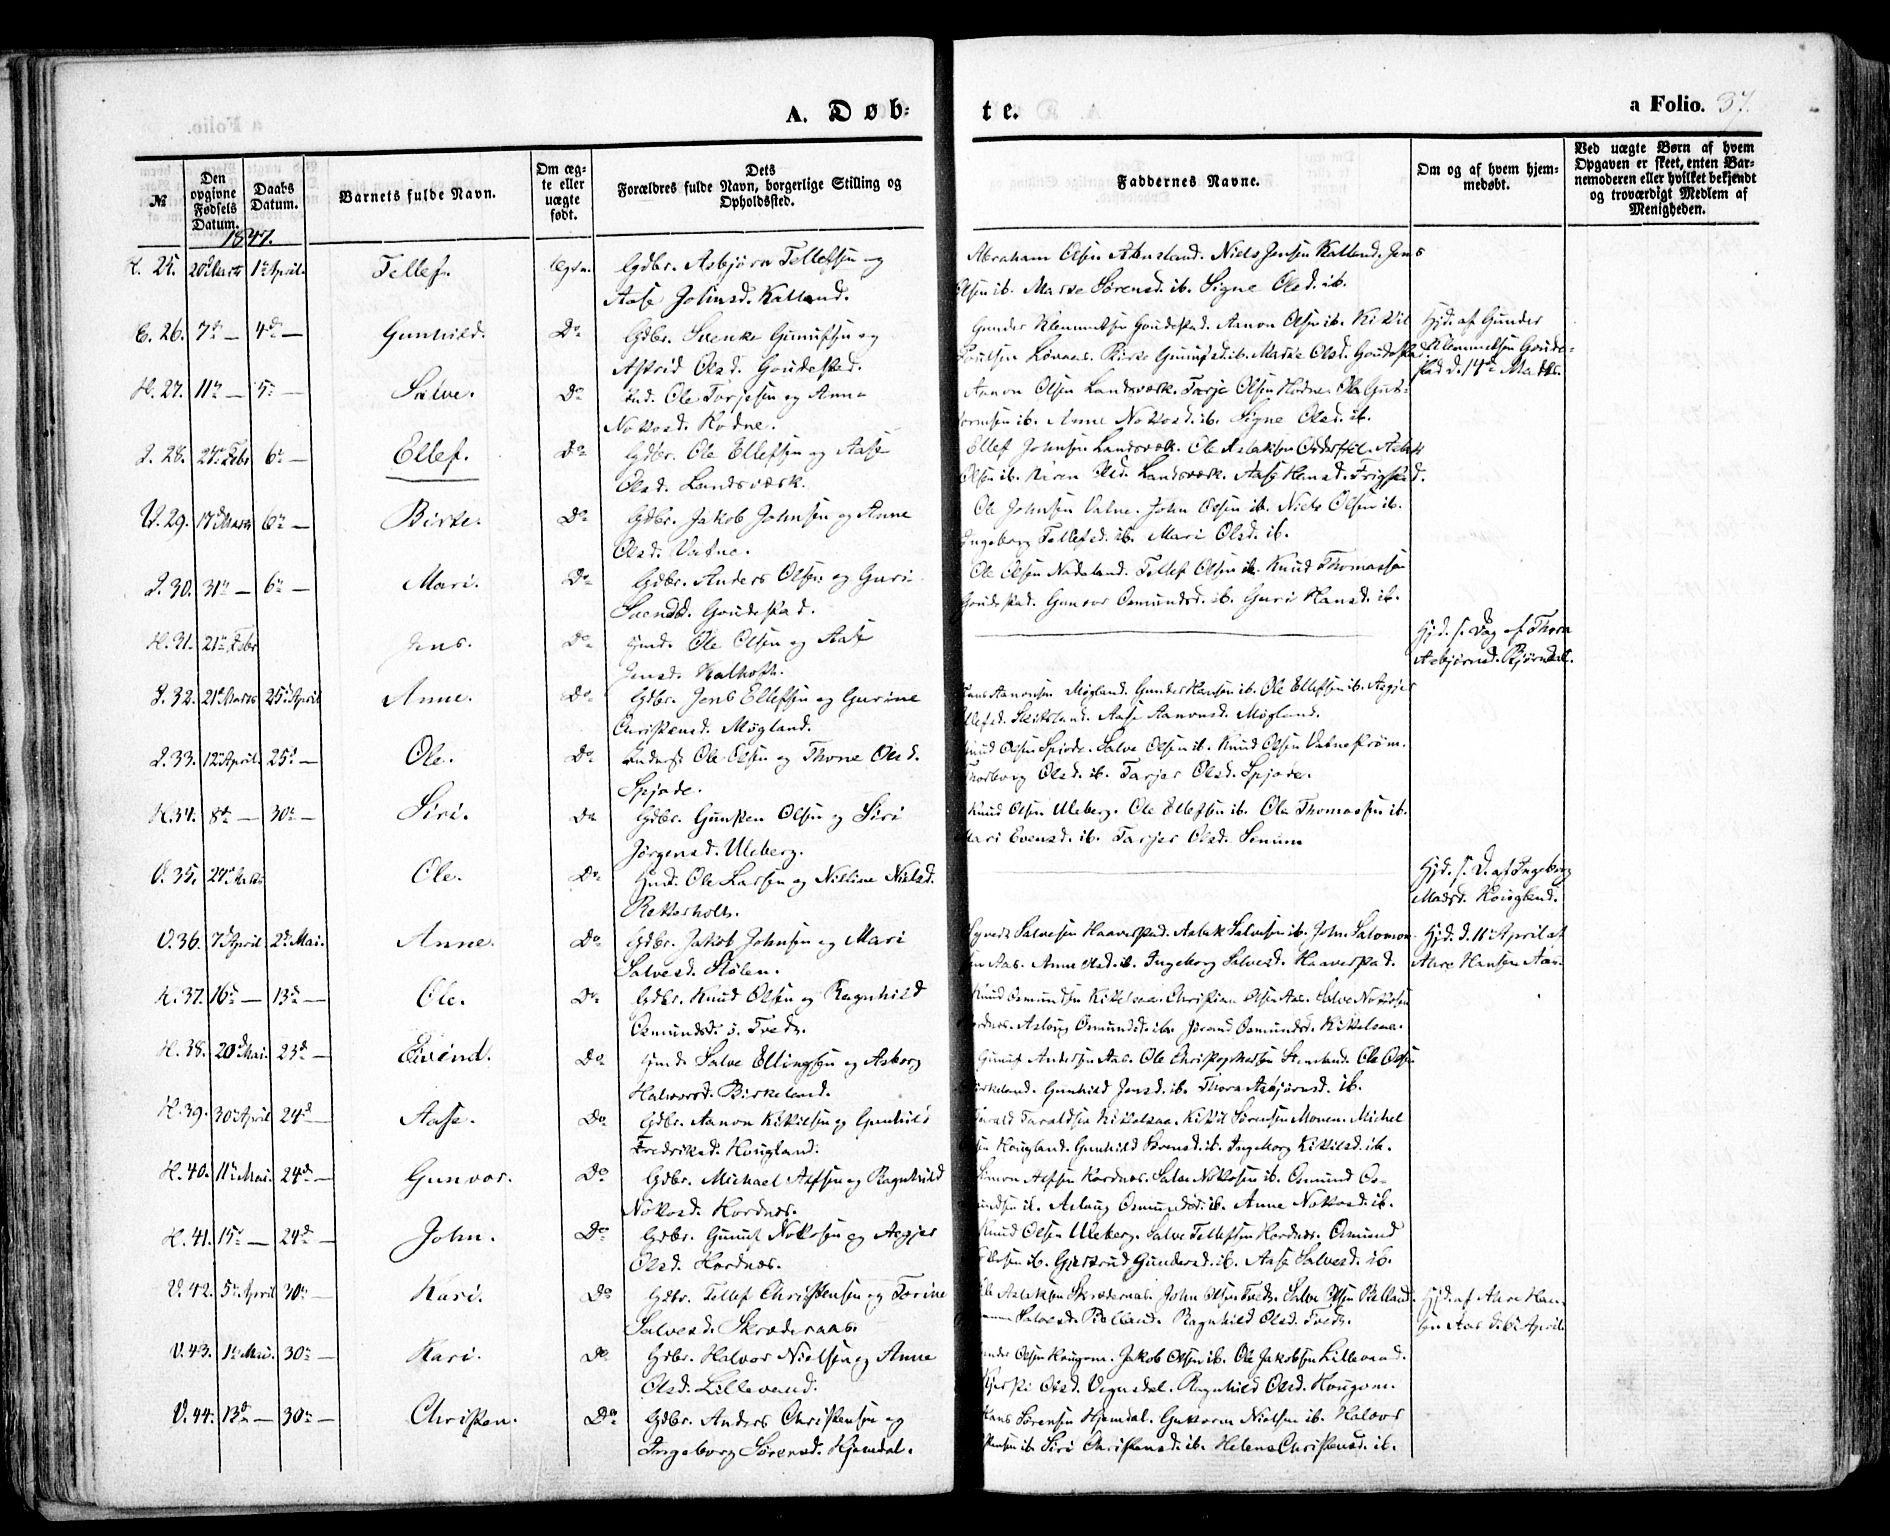 A. Døb-
te.
a Folio. 37.
№
Den opgivne Fødsels Datum.
Daabs Datum.
Barnets fulde Navn.
Om ægte eller uægte født.
Dets Forældres fulde Navn, borgerlige Stilling og Opholdssted.
Faddernes Navne.
Om og af hvem hjemmedøbt.
Ved uægte Børn af hvem Opgaven er skeet, enten Barnemoderen eller hvilket bekjendt og troværdigt Medlem af Menigheden.
1847.
H. 25. 20 Marts 1ste April. Tellef. Ægte. Gdbr. Asbjørn Tellefsen og
Aase Johnsd. Kalland.
Abraham Olsen Niels Jensen Kalland. Jens
Olsen ib. Sørensd. ib. Signe Olsd. ib.
26. 7de — 4de — Gunhild. Do Gdbr. Svenke Gunufsen og
Astrid Olsd. Goudestad.
Gunder Klemmetsen Goudestad. Aanon Olsen ib. Kittil
Birte Gunufsd. ib. Olsd. Goudestad.
Hjd. af Gunder
Klemmetsen Goude-
stad d. 14de Marts.
H. 27. 11te — 5te — Salve. Do Ole Torjesen og Anne
Hodne.
Aanon Olsen Landsværk. Terje Olsen Hodne. Ole Gut-
tormsen ib. Anne ib. Signe Olsd. ib.
28. 27de Febr 6te — Ellef. Do Gdbr. Ole Ellefsen og Aase
Olsd. Landsværk.
Ellef Johnsen Landsværk. Ole Aslaksen
Olsen ib. Olsd. Landsværk. Aase Hansd. Frigstad.
V. 29. 17de Marts 6te — Birte. Do Gdbr. Jakob Johnsen og Anne
Olsd. Vatne.
Ole Johnsen Vatne. John Olsen ib. Niels Olsen ib.
Ingeborg Tellefsd. ib. Mari Olsd. ib.
30. 31te — 6te — Mari. Do Gdbr. Anders Olsen og Guri
Svendsd. Goudestad.
Ole Olsen Tellef Olsen ib. Knud Thomassen
Goudestad. Gunvor Osmundsd. ib. Guri Hansd. ib.
H. 31. 21de Febr Jens. Do Hmd. Ole Olsen og Aase
Jensd. Kalhoft.
Hjd. s. Dag af Thora
Asbjørnsd. Bjørndal.
32. 21de Marts 25de April Anne. Do Gdbr. Jens Ellefsen og Gurine
Christensd. Møgland.
Aanonsen Møgland. Gunder Hansen ib. Ole Ellefsen ib. Asgjer
Ellefsd. Aase Aanonsd. Møgland.
33. 12te April. 25de — Ole. Do Ole Olsen og Thone Olsd.
Spjode.
Knud Olsen Spjode. Salve Olsen ib. Knud Olsen Vatnestrøm.
Thorborg Olsd. ib. Tarjer Olsd. Spjode.
H. 34. 8de — 30te — Siri. Do Gdbr. Gunsten Olsen og Siri
Jørgensd. Uleberg.
Knud Olsen Uleberg. Ole Ellefsen ib. Ole Thomassen ib.
Mari Evensd. ib. Tarjer Olsd. Senum
V. 35. Ole. Do Hmd. Ole Larsen og Nieline Nielsd.
Retterholt.
Hjd. s. D. af Ingeborg
Madsd. Hougland.
V. 36. 7de April 2de Mai. Anne. Do Gdbr. Jakob Johnsen og Mari
Salvesd. Stølen.
Salvesen Haaverstad. Aslak Salvesen ib. John Salomon-
sen Aas. Anne Olsd. ib. Ingeborg Salvesd. Haaverstad.
Hjd. d. 11te April af
Hansen Aas.
H. 37. 16de — 13de — Ole. Do Gdbr. Knud Olsen og Ragnhild
Osmundsd. Tvedt.
Knud Osmundsen Kittelsaa. Christian Olsen Aas. Salve
Hordnes. Aslaug Osmundsd. ib. Jorand Osmundsd. Kittelsaa.
H. 38. 20de Mai. 23de — Eivind. Do Hmd. Salve Ellingsen og Asborg
Halvorsd. Birkeland.
Gunuf Andersen Aas. Ole Christophersen Ole Olsen
Birkeland. Gunhild Jensd. ib. Thora Asbjørnsd. ib.
H. 39. 30te April 24de — Aase. Do Gdbr. Aanon Kittilsen og Gunhild
Fredriksd. Hougland.
Tarald Taraldsen Kittelsaa. Kittil Sørensen Monen. Michel
Hougland. Gunhild Svensd. ib. Ingeborg Kittilsd. ib.
H. 40. 11te Mai. 24de — Gunvor. Do Gdbr. Michael Alfsen og Ragnhild
Hordnes.
Simon Alfsen Hordnes. Salve ib. Osmund Os-
mundsen ib. Aslaug Osmundsd. ib. Anne ib.
H. 41. 15de — 24de — John. Do Gdbr. Gunuf og Asgjer
Olsd. Hordnes.
Knud Olsen Uleberg. Salve Tellefsen Hordnes. Osmund
ib. Gjertrud Gundersd. ib. Aase Salvesd. ib.
V. 42. 5te April 30te — Kari. Do Gdbr. Tellef Christensen og Torine
Salvesd. Skræderaas.
Ole Aslaksen Skræderaas. John Olsen Tvedt. Salve Olsen Belland.
Salvesd. Belland. Ragnhild Olsd. Tvedt.
Hjd. af Han-
sen Aas d. 6te April.
V. 43. 1ste Mai. 30te — Kari. Do Gdbr. Halvor Nielsen og Anne
Olsd. Lillevand.
Olsen Hougom. Jakob Olsen ib. Ole Jakobsen Lillevand.
Olsd. Vegusdal. Ragnhild Olsd. Hougom.
V. 44. 13de — 30te — Christen. Do Gdbr. Anders Christensen og
Ingeborg Sørensd. Hjemdal.
Hans Sørensen Hjemdal. Guttorm Nielsen ib. Halvor
ib. Siri Christensd. ib. Helene Christensd. ib.